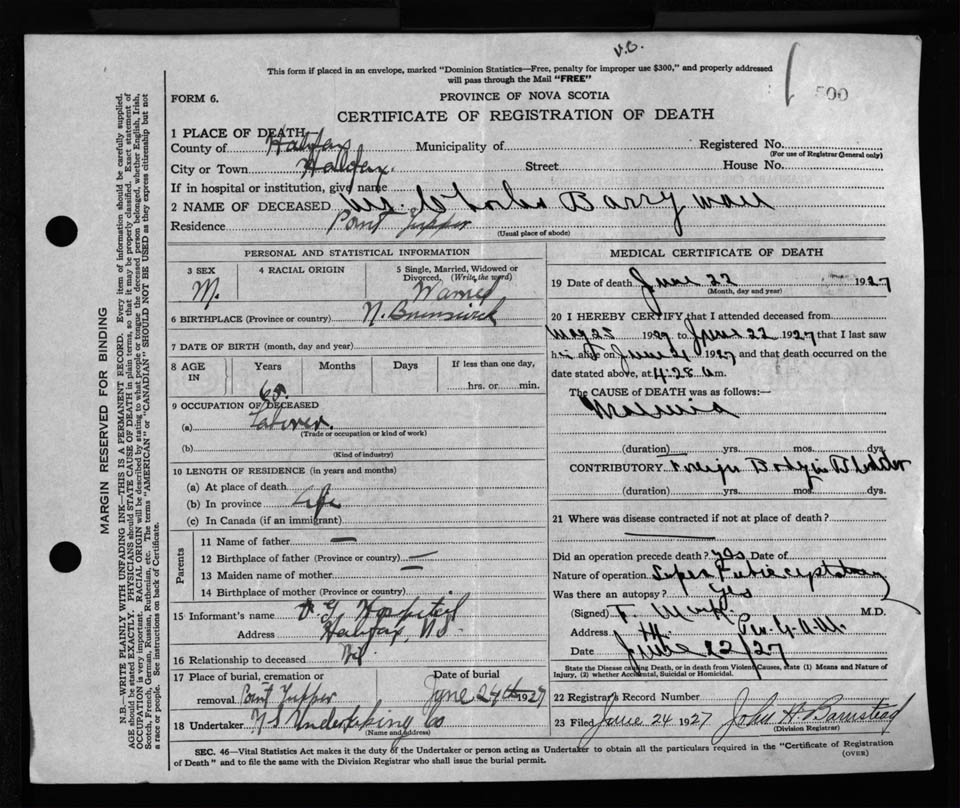 V.S.
This form if placed in an envelope, marked "Dominion Statistics—Free, penalty for improper use $300," and properly addressed
will pass through the Mail "FREE"
500
FORM 6.
PROVINCE OF NOVA SCOTIA
CERTIFICATE OF REGISTRATION OF DEATH
1 PLACE OF DEATH—
County of Halifax Municipality of Registered No.
(For use of Registrar General only)
City or Town Halifax. Street House No.
If in hospital or institution, give name
2 NAME OF DECEASED Mr. Charles Barryman
Residence Point Tupper
(Usual place of abode)
PERSONAL AND STATISTICAL INFORMATION
3 SEX 4 RACIAL ORIGIN 5 Single, Married, Widowed or Divorced, (Write the word)
M. Married
6 BIRTHPLACE (Province or country) N. Brunswick
7 DATE OF BIRTH (month, day and year)
8 AGE IN Years Months Days If less than one day,
65. hrs. or min.
9 OCCUPATION OF DECEASED
(a) Laborer.
(Trade or occupation or kind of work)
(b)
(Kind of industry)
10 LENGTH OF RESIDENCE (in years and months)
(a) At place of death
(b) In province Life
(c) In Canada (if an immigrant)
Parents
11 Name of father —
12 Birthplace of father (Province or country) —
13 Maiden name of mother —
14 Birthplace of mother (Province or country)
15 Informant's name V. G. Hospital
Address Halifax, N.S.
16 Relationship to deceased Nil
17 Place of burial, cremation or Date of burial
removal Point Tupper June 24th 1927
18 Undertaker N S Undertaking Co
(Name and address)
MEDICAL CERTIFICATE OF DEATH
19 Date of death June 22 1927
(Month, day and year)
20 I HEREBY CERTIFY that I attended deceased from
May 25 1927 to June 22 1927 that I last saw
him alive on June 21 1927 and that death occurred on the
date stated above, at 4:28 a m.
The CAUSE OF DEATH was as follows:—
(duration) yrs. mos. dys.
CONTRIBUTORY Foreign Body in Bladder
(duration) yrs. mos. dys.
21 Where was disease contracted if not at place of death?
Did an operation precede death? Yes Date of
Nature of operation Supra Pubic cystotomy
Was there an autopsy? Yes
(Signed) F. M.D.
Address
Date June 22/27
State the Disease causing Death, or in death from Violent Causes, state (1) Means and Nature of
Injury, (2) whether Accidental, Suicidal or Homicidal.
22 Registrar's Record Number
23 Filed June 24 1927 John H Barnstead
(Division Registrar)
SEC. 46—Vital Statistics Act makes it the duty of the Undertaker or person acting as Undertaker to obtain all the particulars required in the "Certificate of Registration
of Death" and to file the same with the Division Registrar who shall issue the burial permit. (OVER)
MARGIN RESERVED FOR BINDING
N.B.—WRITE PLAINLY WITH UNFADING INK—THIS IS A PERMANENT RECORD. Every item of information should be carefully supplied.
AGE should be stated EXACTLY. PHYSICIANS should STATE CAUSE OF DEATH in plain terms, so that it may be properly classified. Exact statement of
OCCUPATION is very important. RACIAL ORIGIN will be described by stating to what people or tongue the deceased person belonged, whether English, Irish,
Scotch, French, German, Russian, Ruthenian, etc. The terms "AMERICAN" or "CANADIAN" SHOULD NOT BE USED as they express citizenship but not
a race or people. See instructions on back of Certificate.